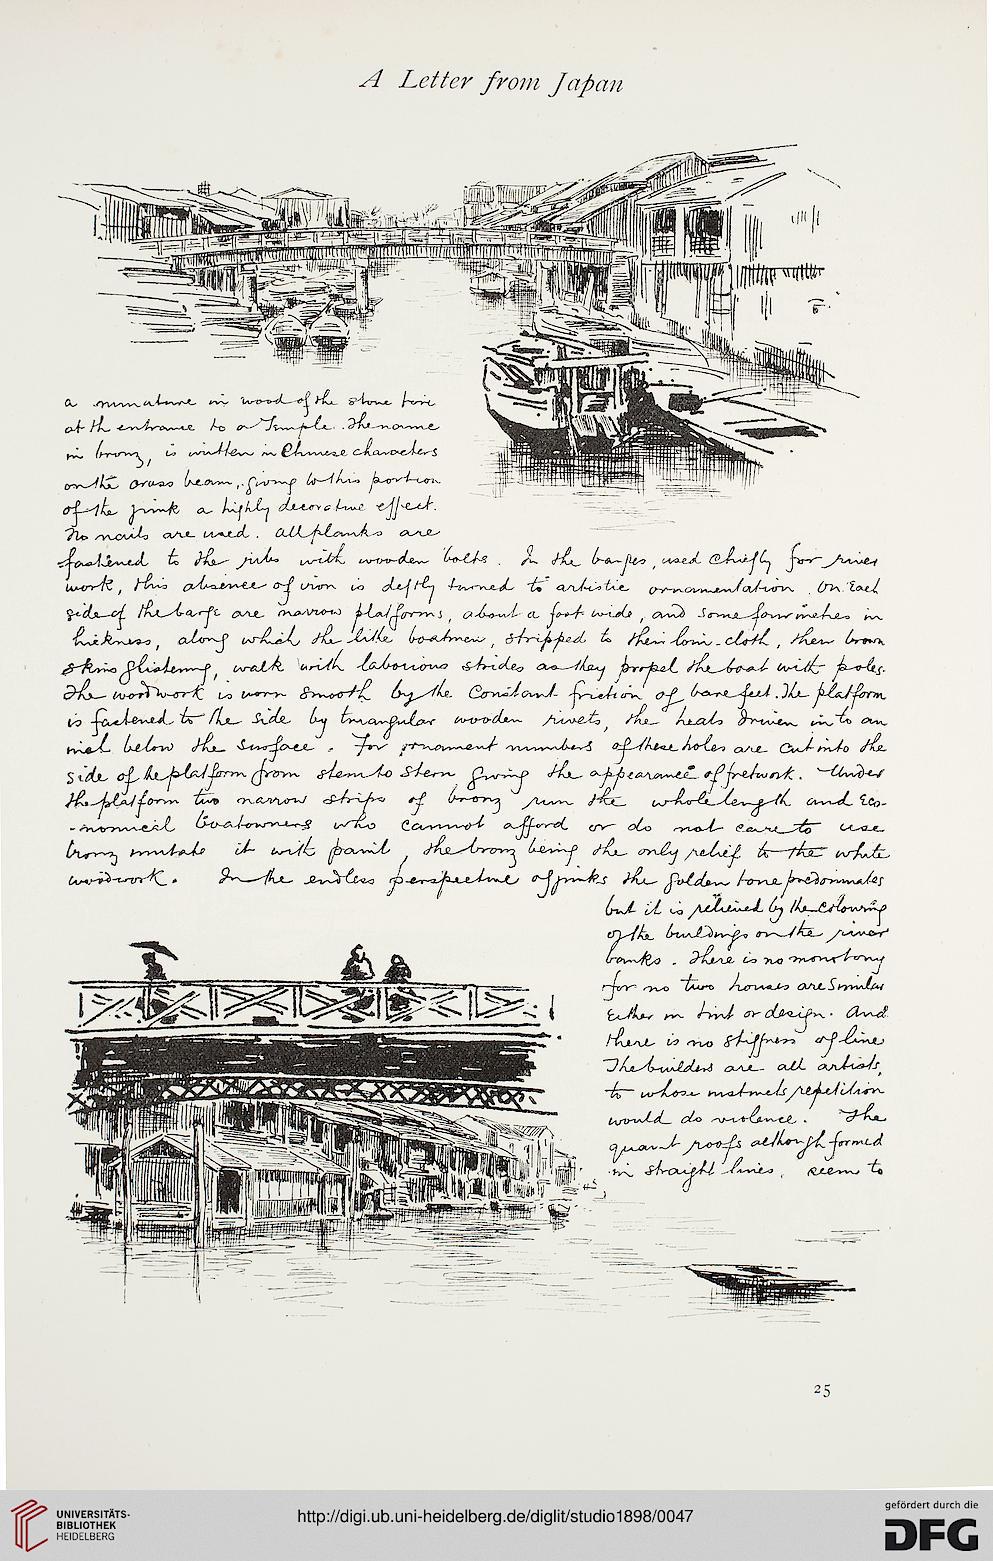 A Letter from Japan
a miniature in wood of the stone torii
at th entrance to a Temple. The name
in bronz, is written in Chinese characters
on the cross beam, giving to this portion
of the junk a highly decorative effect.
No nails are used. All planks are
fastened to the ribs with wooden bolts. In the barges, used chiefly for river
work, this absence of iron is deftly turned to artistic ornamentation. On Each
side of the barge are narrow platforms, about a foot wide, and some four inches in
thickness, along which the lithe boatmen, stripped to their loin-cloth, their brown
skins glistening, walk with laborious strides as they propel the boat with poles.
The woodwork is worn smooth by the constant friction of bare feet. The platform
is fastened to the side by triangular wooden rivets, the heads driven in to an
inch below the surface. For ornament numbers of these holes are cut into the
side of the platform from stem to stern giving the appearance of fretwork. Under
the platform two narrow strips of bronz run the whole length and eco-
-nomical boatowners who cannot afford or do not care to use
bronz imitate it with paint, the bronz being the only relief to the white
woodwork. In the endless perspective of junks the golden tone predominates
but it is relieved by the colouring
of the buildings on the river
banks. There is no monotony
for no two houses are similar
Either in tint or design. And
there is no stiffness of line
The builders are all artists,
to whose instincts repetition
would do violence. The
quaint roofs although formed
in straight lines, seem to
25
UNIVERSITÄTS-
BIBLIOTHEK
HEIDELBERG
http://digi.ub.uni-heidelberg.de/diglit/studio1898/0047
gefördert durch die
DFG